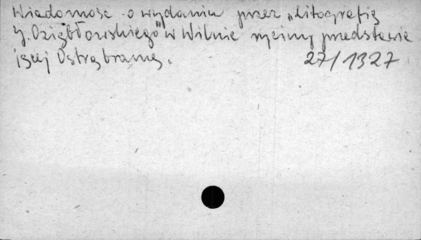 Wiadomość o wydaniu przez „Litografię
J. Oziębłowskiego" w Wilnie ryciny przedstawia
jącej Ostrąbramę.
27/1327